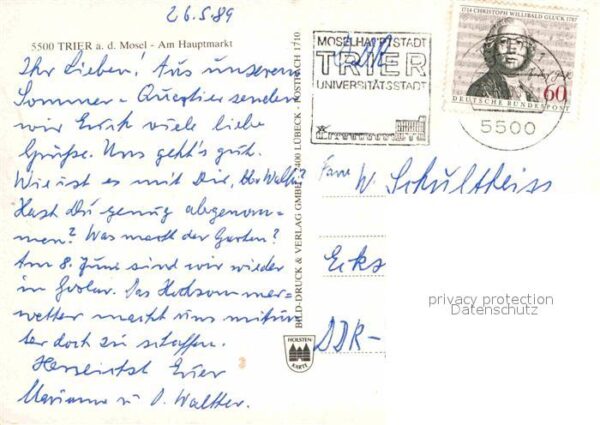 26.5.89
5500 TRIER a. d. Mosel - Am Hauptmarkt
Ihr Lieben! Aus unserem
Sommer-Quartier senden
wir Euch viele liebe
Grüße. Uns geht's gut.
Wie ist es mit Dir, Walter?
Hast Du genug abgenom=
men? Was macht der Garten?
Am 8. Juni sind wir wieder
in Goslar. Das Hochsommer=
wetter macht uns mitun=
ter doch zu schaffen.
Herzlichst Euer
Marianne u. O. Walther.
BILD-DRUCK & VERLAG GMBH 2400 LÜBECK · POSTFACH 1710
HOLSTEN
KARTE
MOSELHAUPTSTADT
TRIER
UNIVERSITÄTSSTADT
1714 CHRISTOPH WILLIBALD GLUCK 1787
60
DEUTSCHE BUNDESPOST
5500
Fam W. Schultheiss
Ecks
DDR-
privacy protection
Datenschutz